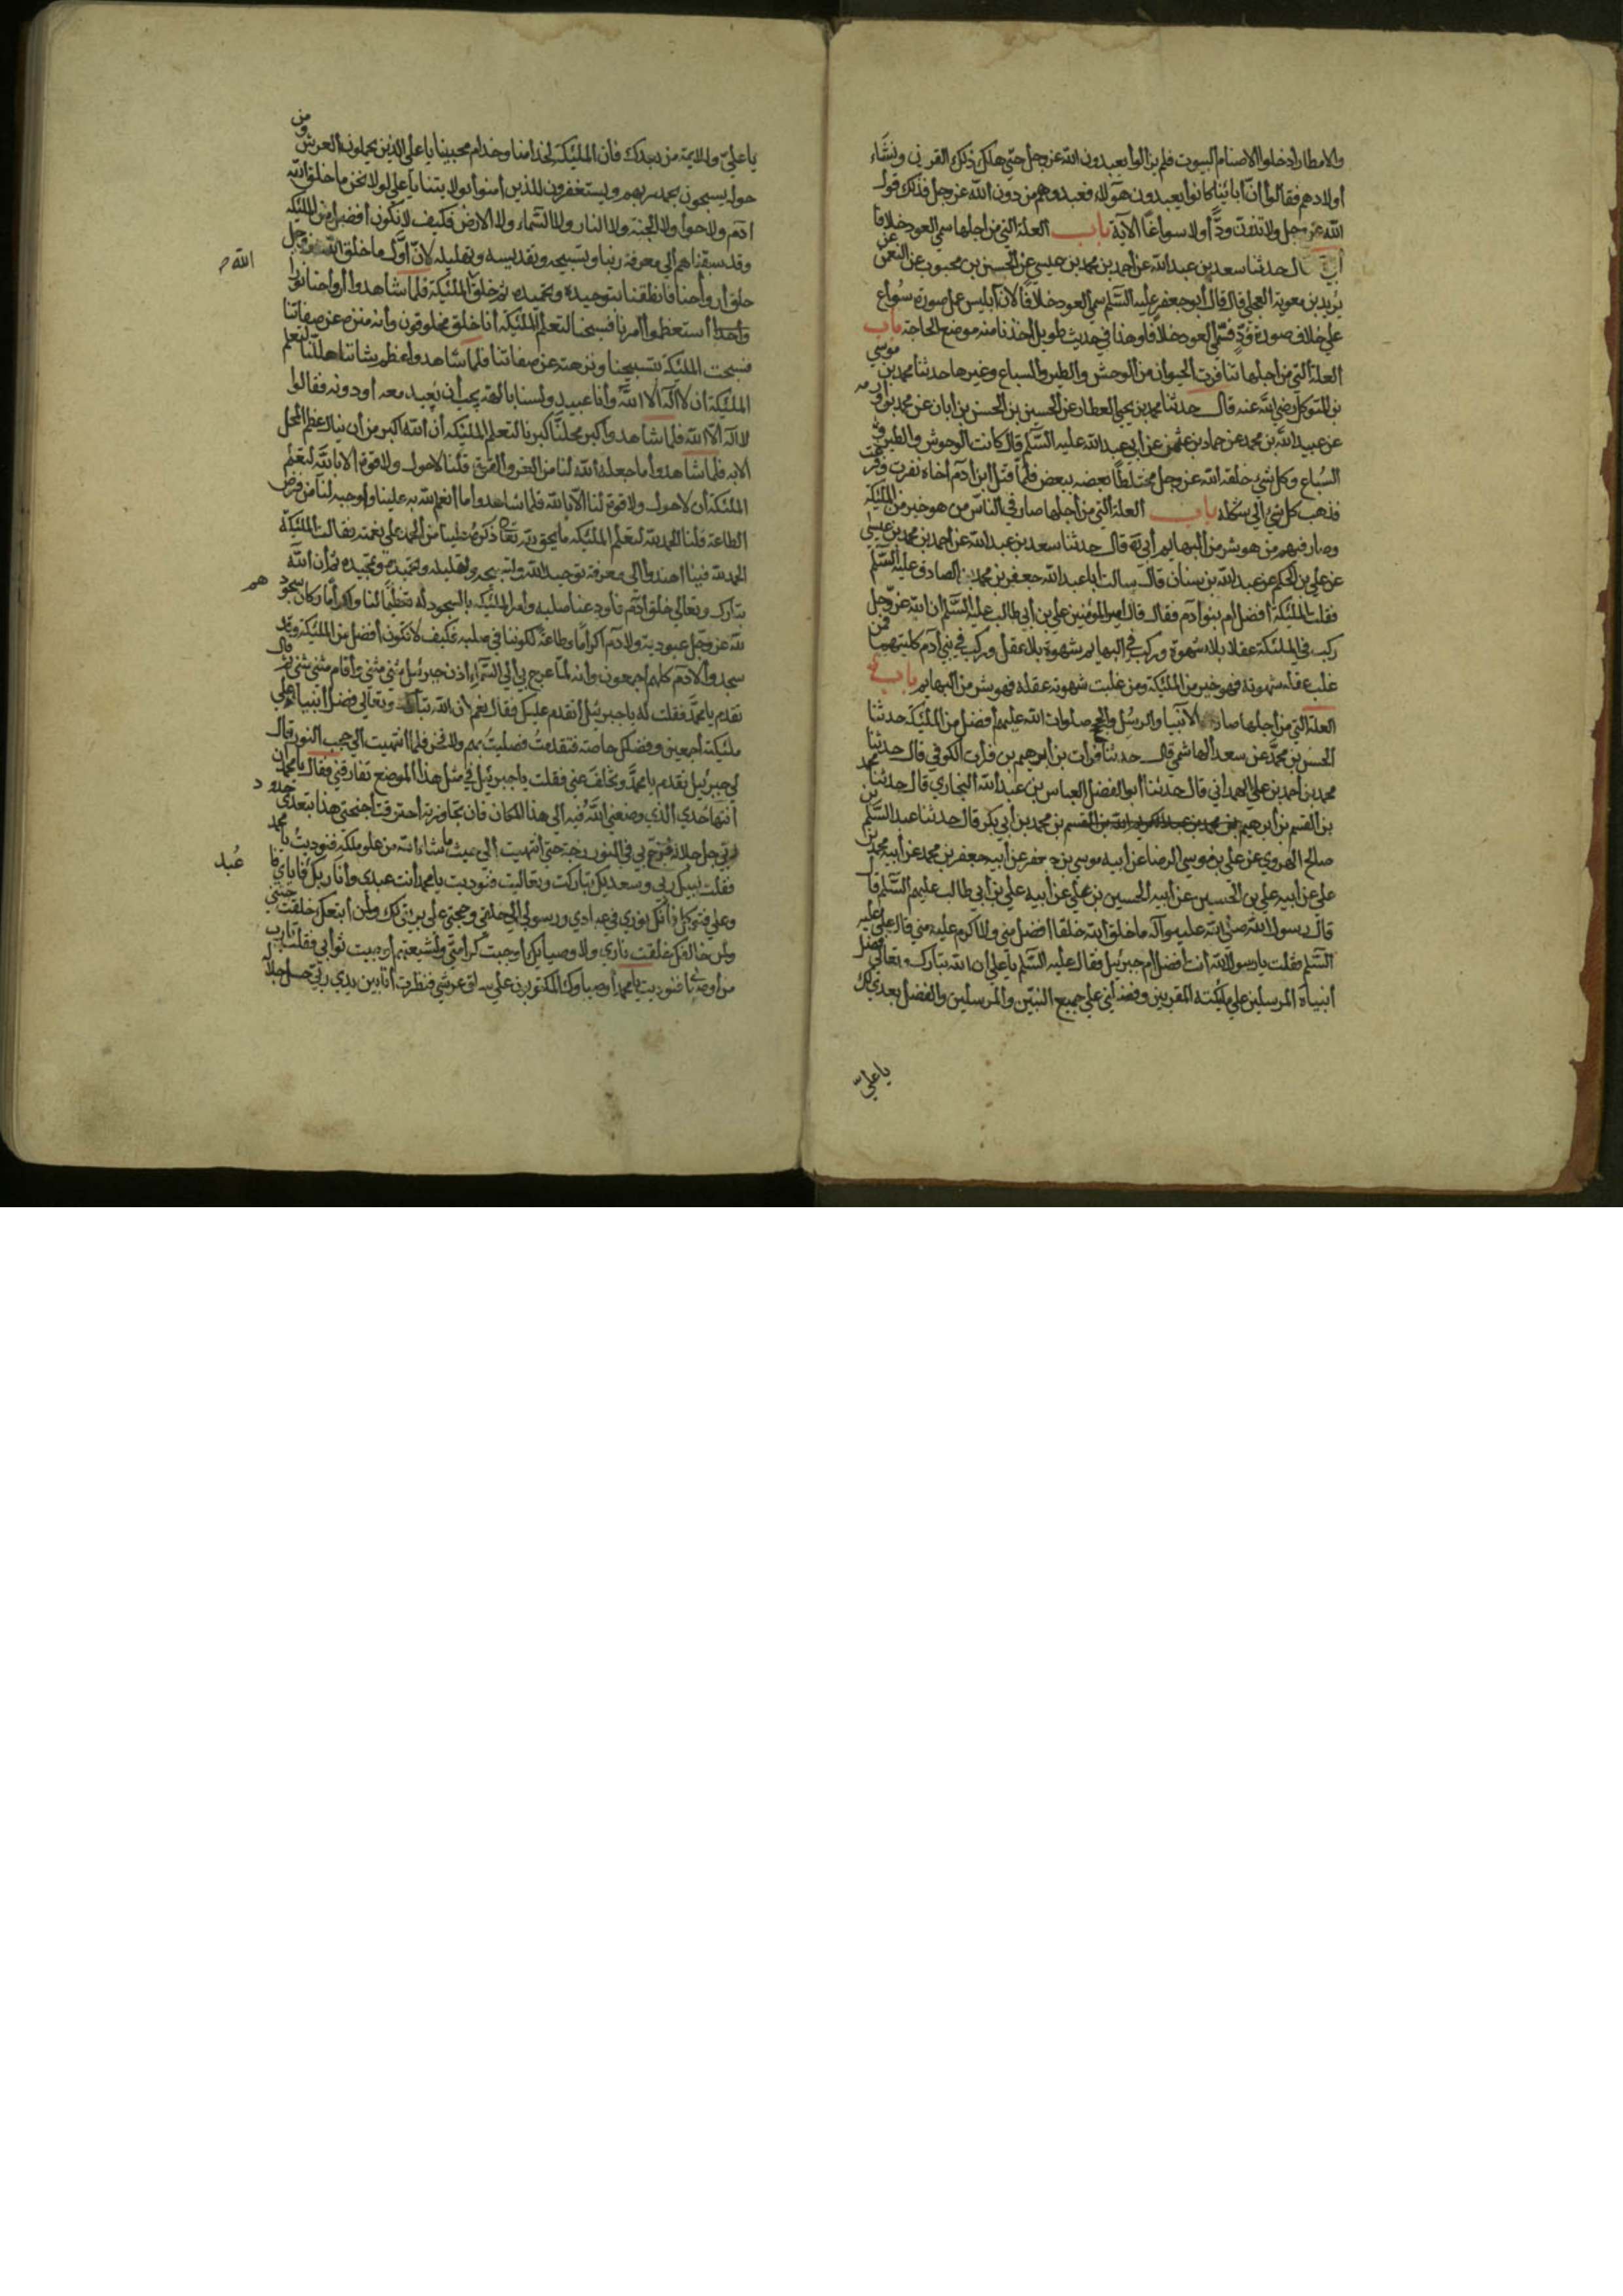 والامطار ادخلوا الاصنام البيوت فلم يزالوا يعبدون الله عز وجل حتي هلك ذلك القرن ونشاء
أولادهم فقالوا انّ ابائنا كانوا يعبدون هؤلاء فعبدوهم من دون الله عز وجل فذلك قول
الله عز وجل ولا تذرن ودّاً ولا سواعًا الآية باب العلة التي من اجلها سمي العود خلافا
حدثنا سعد بن عبد الله عن احمد بن محمد بن عيسي عن الحسن بن محبوب عن النعمن عن
بريد بن معوية العجلي قال قال أبو جعفر عليه السّلم سمي العود خلافاً لان ابليس عمل صورة سُواع
علي خلاف صورة وُدّ فسمّي العود خلافا وهذا في حديث طويل اخذنا منه موضع الحاجة باب
العلة التي من اجلها تنافرت الحيوان من الوحش والطير والسباع وغيرها حدثنا محمد بن موسي
بن المتوكل رضي الله عنه قال حدثنا محمد بن يحيي العطار عن الحسين بن الحسن بن ابان عن محمد بن أورمه
عن عبد الله بن محمد عن حماد بن عثمن عن أبي عبد الله عليه السّلم قال كانت الوحوش والطير و
السُباع وكل شيء خلقه الله عز وجل مختلطًا بعضه ببعض فلمّا قتل ابن آدم أخاه نفرت وفزعت
فذهب كل شيء الي شكله باب العلة التي من أجلها صار في الناس من هو خير من الملئكة
وصار فيهم من هو شر من البهايم أبي ره قال حدثنا سعد بن عبد الله عن احمد بن محمد بن عيسي
عن علي بن الحكم عن عبد الله بن سنان قال سالت أبا عبد الله جعفر بن محمد الصادق عليه السّلم
فقلت الملئكة أفضل أم بنوا آدم فقال قال أمير المؤمنين علي بن أبي طالب عليه السّلم ان الله عز وجل
ركب في الملئكة عقلا بلا شهوة وركب في البهايم شهوة بلا عقل وركب في بني آدم كليتهما فمن
غلب عقله شهوته فهو خير من الملئكة ومن غلبت شهوته عقله فهو شر من البهايم باب
العلة التي من اجلها صار الأنبيا والرسُل والحجج صلوات الله عليهم أفضل من الملئكة حدثنا
الحسن بن محمد بن سعد الهاشمي قال حدثنا فرات بن ابرهيم بن فرات الكوفي قال حدثنا
محمد بن أحمد بن علي الهمداني قال حدثنا ابو الفضل العباس بن عبد الله البخاري قال حدثنا محمد
بن القسم بن أبرهيم بن محمد بن عبد الله بن القسم بن محمد بن أبي بكر قال حدثنا عبد السّلم بن
صالح الهروي عن علي بن موسي الرضا عن أبيه موسي بن جعفر عن أبيه جعفر بن محمد عن أبيه محمد بن
علي عن ابيه علي بن الحسين عن أبيه الحسين بن علي عن أبيه علي بن أبي طالب عليهم السّلم قا
قال رسول الله صلي الله عليه وآله ما خلق الله خلقا افضل مني ولا اكرم عليه مني قال علي عليه
السّلم فقلت يا رسول الله انت أفضل ام جبرئيل فقال عليه السّلم يا علي ان الله تبارك وتعالي فضل
أنبياه المرسلين علي ملئكته المقربين وفضلني علي جميع النبيّن والمرسلين والفضل بعدي لك
يا عليّ
يا عليّ وللايمة من بعدك فأن الملئكة لخدامنا وخدام محبينا يا علي الذين يحملون العرش ومن
حوله يسبحون بحمد ربهم ويستغفرون للذين امنوا بولايتنا يا علي لولا نحن ما خلق الله
ادم ولا حوا ولا الجنة ولا النار ولا السّماء ولا الارض فكيف لا نكون أفضل من الملئكة
وقد سبقناهم الي معرفة ربنا وتسبيحه وتقديسه وتهليله لانّ اوّل ما خلق الله عز وجل
الله
خلق أرواحنا فانطقنا بتوحيده وتحميده ثم خلق الملئكة فلما شاهدوا أرواحنا نورا
واحدا أستعظموا امرنا فسبحنا لتعلم الملئكة أنا خلق مخلوقون وأنه منزه عن صفاتنا
فسبحت الملئكة بتسبيحنا ونزهته عن صفاتنا فلما شاهدوا عظم شاننا هللنا لتعلم
الملئكة ان لا اله الا الله وأنا عبيد ولسنا بالهة يجب أن نعبد معه او دونه فقالوا
لا اله الا الله فلما شاهدوا كبر محلنا كبرنا لتعلم الملئكة أن الله اكبر من أن ينال عظم المحل
الا به فلما شاهدوا ما جعله الله لنا من العز والقوة قلنا لا حول ولا قوة الا بالله لتعلم
الملئكة أن لا حول ولا قوة لنا الا بالله فلما شاهدوا ما انعم الله به علينا وأوجبه لنا من فرض
الطاعة قلنا الحمد لله لتعلم الملئكة ما يحق لله تعا ذكره علينا من الحمد علي نعمته فقالت الملئكة
الحمد لله فبنا اهتدوا الي معرفة توحيد الله وتسبيحه وتهليله وتحميده وتمجيده ثم أن الله
تبارك وتعالي خلق ادم فاودعنا صلبه وأمر الملئكة بالسجود له تعظيمًا لنا واكرأما وكان سجود
هم
لله عز وجل عبودية ولآدم اكراما وطاعة لكوننا في صلبه فكيف لا نكون أفضل من الملئكة وقد
سجدوا لادم كلهم أجمعون وأنه لما عرج بي الي السّماء اذن جبرئيل مثني مثني وأقام مثني مثني ثم قال
تقدم يا محمد فقلت له يا جبرئيل أتقدم عليك فقال نعم لان الله تبارك وتعالي فضل أنبياه علي
ملئكته أجمعين وفضلك خاصة فتقدمتُ فصليتُ بهم ولا فخر فلما انتهيت الي حجب النور قال
لي جبرئيل تقدم يا محمد وتخلف عني فقلت يا جبرئيل في مثل هذا الموضع تفارقني فقال يا محمد ان
أنتهاء حدي الذي وضعني الله فيه الي هذا المكان فان تجاوزته احترقت أجنحتي هذا بتعدي حدود
ربي جل جلاله فزخ بي في النور زخة حتي أنتهيت الي حيث ما شاء الله من علو ملكه فنوديتُ يا محمد
فقلت لبيك ربي وسعديك تباركت وتعاليت فنوديت يا محمد أنت عبدي وأنا ربك فاياي فا
عبد
وعلي فتوكل فانك نوري في عبادي ورسولي الي خلقي وحجتي علي بريتي لك ولمن اتبعك خلقت جنتي
ولمن خالفك خلقت ناري ولاوصيايك أوجبت كرامتي ولشيعتهم أوجبت ثوابي فقلت يا رب
من أوصيائي فنوديت يا محمد أوصياوك المكتوبون علي ساق عرشي فنظرت أنا بين يدي ربي جل جلاله